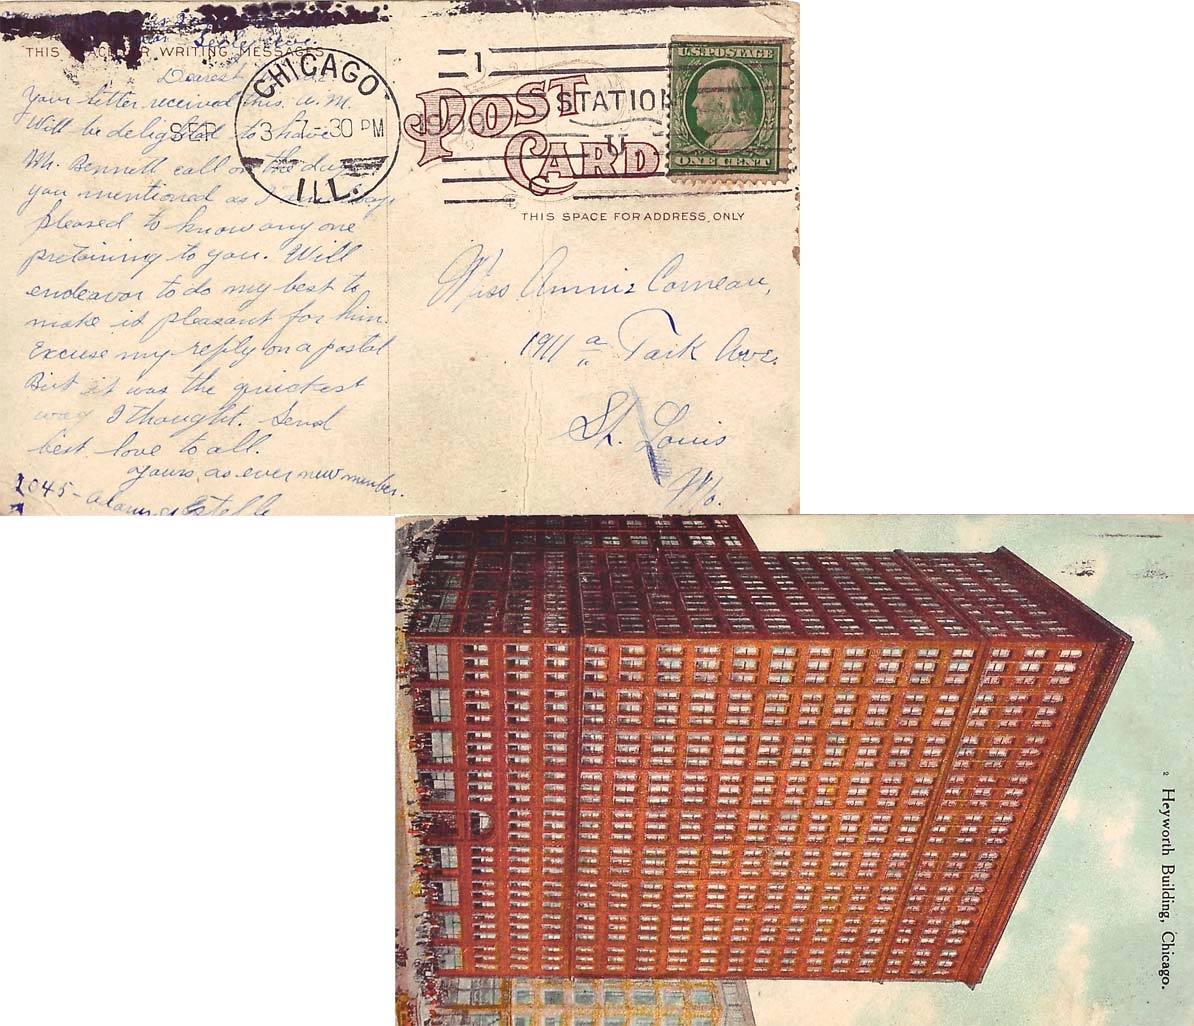 THIS SPACE FOR WRITING MESSAGES
Dearest
Your letter received this A.M.
Will be delighted to have
Mr. Bennett call on the day
you mentioned as I am
pleased to know any one
pretaining to you. Will
endeavor to do my best to
make it pleasant for him.
Excuse my reply on a postal
But it was the quickest
way I thought. Send
best love to all.
Yours as ever new member.
2045 - Estelle
CHICAGO
SEP 3 7-30 PM
ILL.
1
STATION
U
POST
CARD
U.S. POSTAGE
ONE CENT
THIS SPACE FOR ADDRESS ONLY
Miss Annie Comeau,
1911 a Park Ave.
St. Louis
Mo.
2 Heyworth Building, Chicago.